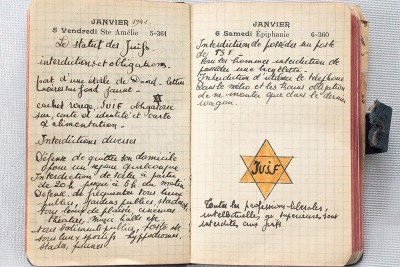 JANVIER 1941
5 Vendredi Ste Amélie 5-361
Le statut des Juifs
interdictions et obligations.
port d'une étoile de David - lettres
noires sur fond jaune -
cachet rouge, JUIF obligatoire
sur, carte d'identité et carte
d'alimentation -
Interdictions diverses
Défense de quitter son domicile
pour un séjour quelconque
Interdiction de sortir à partir
de 20h jusqu'à 6h du matin
Défense de fréquenter tous lieux
publics, jardins publics, stades,
tous lieux de plaisir, cinémas
théâtre, music hall etc.
tous bâtiments publics, poste etc
tous lieux sportifs hyppodromes,
stades, piscines
JANVIER
6 Samedi Épiphanie 6-360
Interdiction de posséder un poste
de TSF -
Pour les hommes interdiction de
posséder une bicyclette -
Interdiction d'utiliser le téléphone
Dans le métro et les trains obligation
de ne monter que dans le dernier
wagon.
JUIF
Toutes les professions libérales,
intellectuelles, supérieures sont
interdites aux juifs